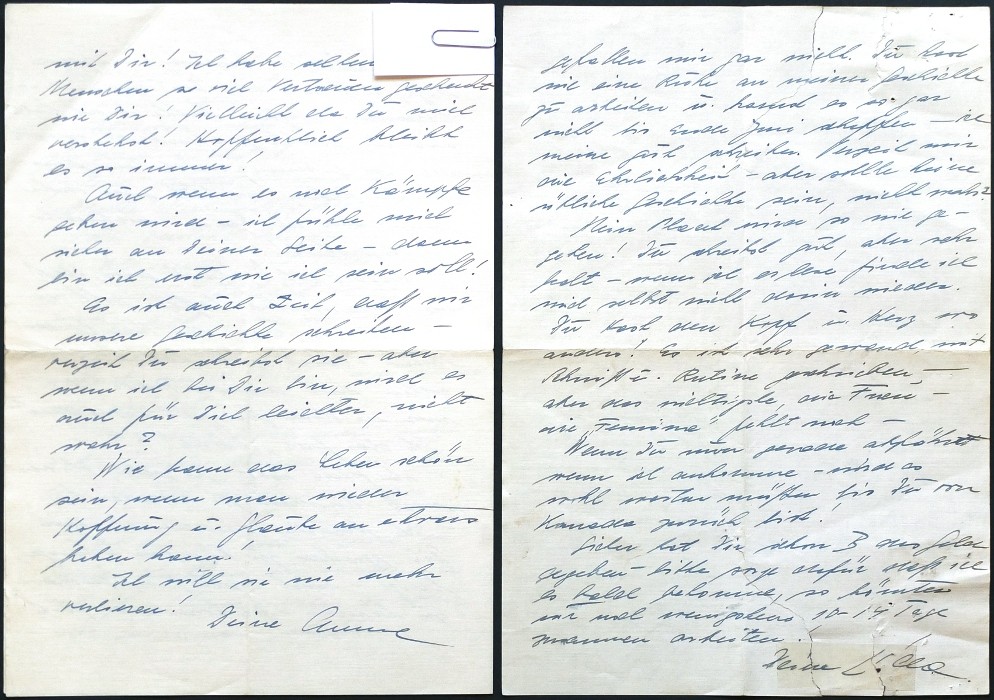 mit Dir! Ich habe selten
Menschen so viel Vertrauen geschenkt
wie Dir! Vielleicht da Du mich
verstehst! Hoffentlich bleibt
es so immer!
Auch wenn es noch Kämpfe
geben wird – ich fühle mich
sicher an Deiner Seite – dann
bin ich erst wie ich sein soll!
Es ist auch Zeit, daß wir
unsere Geschichte schreiben –
verzeih Du schreibst sie – aber
wenn ich bei Dir bin, wird es
auch für Dich leichter, nicht
wahr?
Wie kann das Leben schön
sein, wenn man wieder
Hoffnung u. Glaube an etwas
haben kann!
Ich will sie nie mehr
verlieren!
Deine
gefallen mir gar nicht. Du hast
nie eine Ruhe an meiner Geschichte
zu arbeiten u. kannst es so gar
nicht bis Ende Juni schaffen – ich
meine gut schreiben. Verzeih mir
die Ehrlichkeit – aber sollte keine
übliche Geschichte sein, nicht wahr?
Mein Blut wird so nie ge-
geben! Du schreibst gut, aber sehr
kalt – wenn ich es lese, finde ich
mich selbst nicht darin wieder.
Du hast den Kopf u. Herz wo
anders! Es ist sehr gewand, mit
Schmiß u. Rutine geschrieben, –
aber das wichtigste, die Frau –
die "Femina" fehlt noch –
Wenn Du nun gerade abfährst
wenn ich ankomme – wird es
wohl warten müßen bis Du von
Kanada zurück bist!
Sicher hat Dir schon B das Geld
gegeben – bitte sorge dafür daß ich
es bald bekomme, so könnten
wir noch wenigstens 10-14 Tage
zusammen arbeiten.
Deine